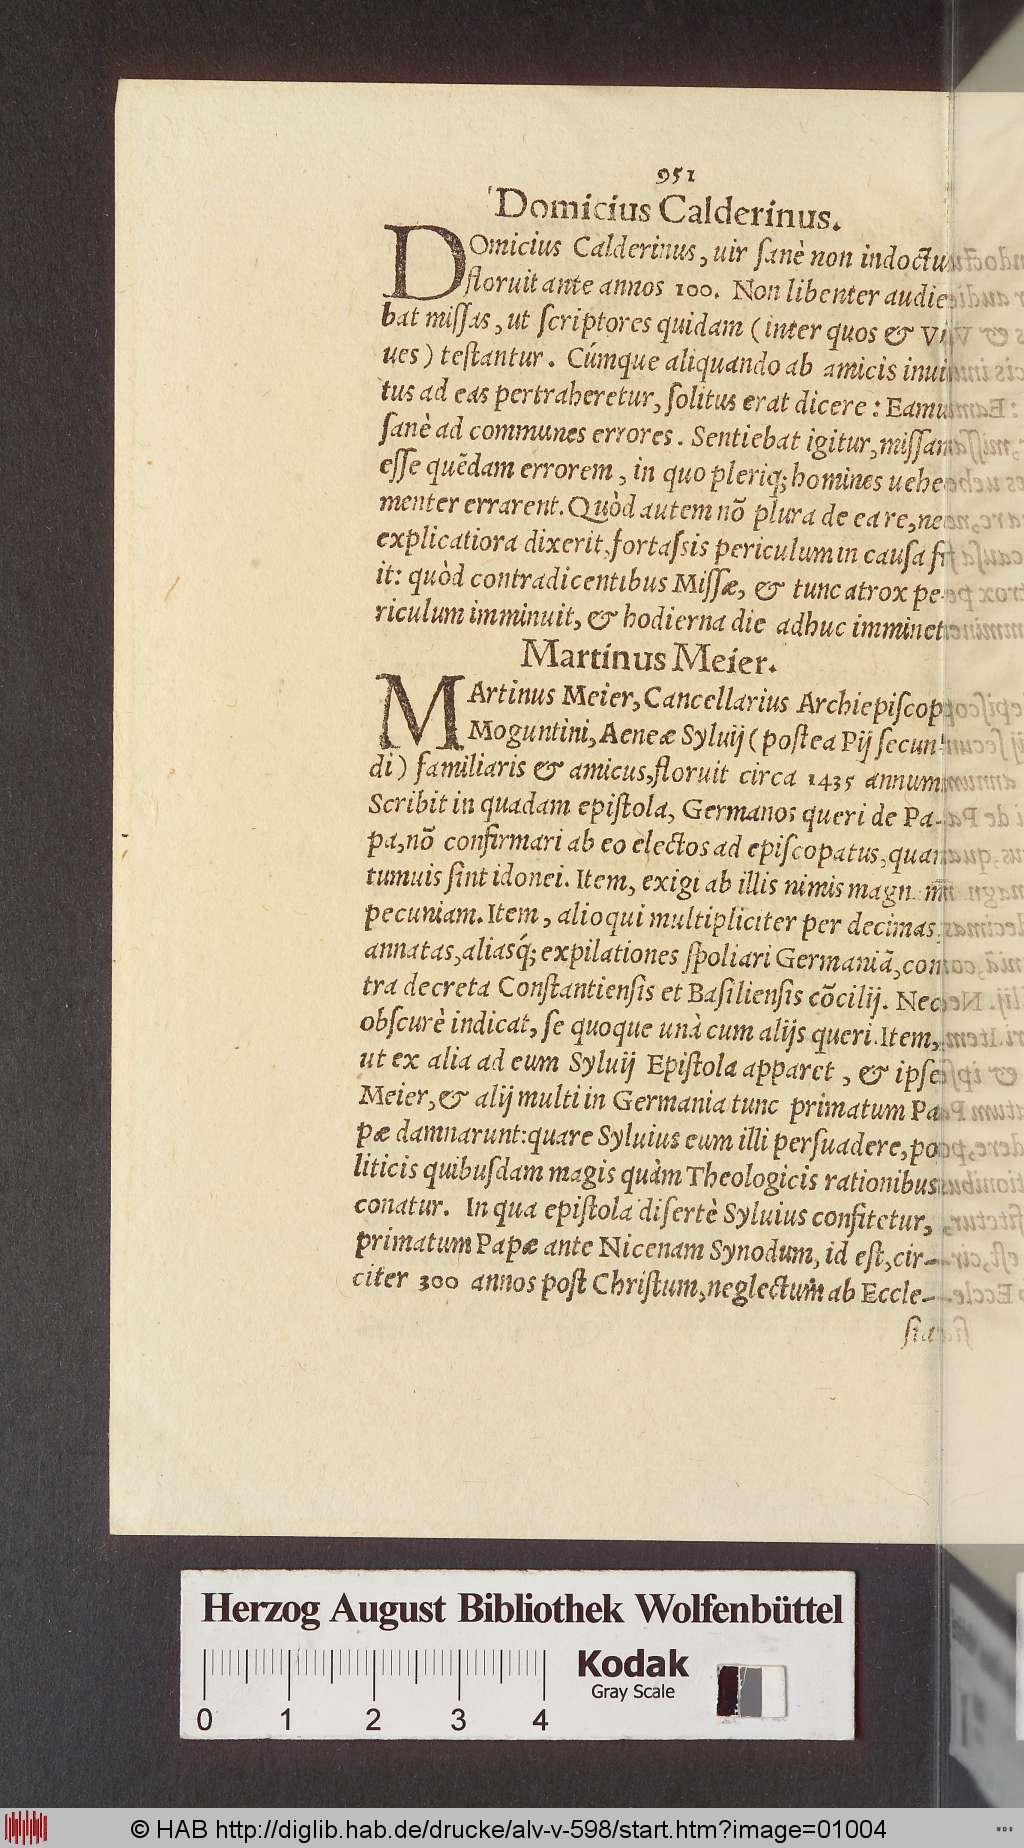 951
Domicius Calderinus.
DOmicius Calderinus, uir ſanè non indoctu
floruit ante annos 100. Non libenter audie
bat miſſas, ut ſcriptores quidam (inter quos & Vi
ues) teſtantur. Cúmque aliquando ab amicis inui
tus ad eas pertraheretur, ſolitus erat dicere: Eamu
ſanè ad communes errores. Sentiebat igitur, miſſam
eſſe quēdam errorem, in quo pleriq; homines uehe
menter errarent. Quòd autem nō plura de ea re, ne
explicatiora dixerit, fortaſsis periculum in cauſa fu
it: quòd contradicentibus Miſſæ, & tunc atrox pe-
riculum imminuit, & hodierna die adhuc imminet
Martinus Meier.
MArtinus Meier, Cancellarius Archiepiſcopi
Moguntini, Aeneæ Syluij (poſtea Pij ſecun
di) familiaris & amicus, floruit circa 1435 annum
Scribit in quadam epiſtola, Germanos queri de Pa-
pa, nō confirmari ab eo electos ad epiſcopatus, quan
tumuis ſint idonei. Item, exigi ab illis nimis magn m
pecuniam. Item, alioqui multipliciter per decimas
annatas, aliasq́; expilationes ſpoliari Germaniã, con
tra decreta Conſtantienſis et Baſilienſis cōcilij. Nec
obſcurè indicat, ſe quoque unà cum alijs queri. Item,
ut ex alia ad eum Syluij Epiſtola apparet, & ipſe
Meier, & alij multi in Germania tunc primatum Pa
pæ damnarunt: quare Syluius eum illi perſuadere, po
liticis quibuſdam magis quàm Theologicis rationibus
conatur. In qua epiſtola diſertè Syluius confitetur,
primatum Papæ ante Nicenam Synodum, id eſt, cir-
citer 300 annos poſt Chriſtum, neglectum ab Eccle-
ſia
Herzog August Bibliothek Wolfenbüttel
Kodak
Gray Scale
0 1 2 3 4
© HAB http://diglib.hab.de/drucke/alv-v-598/start.htm?image=01004